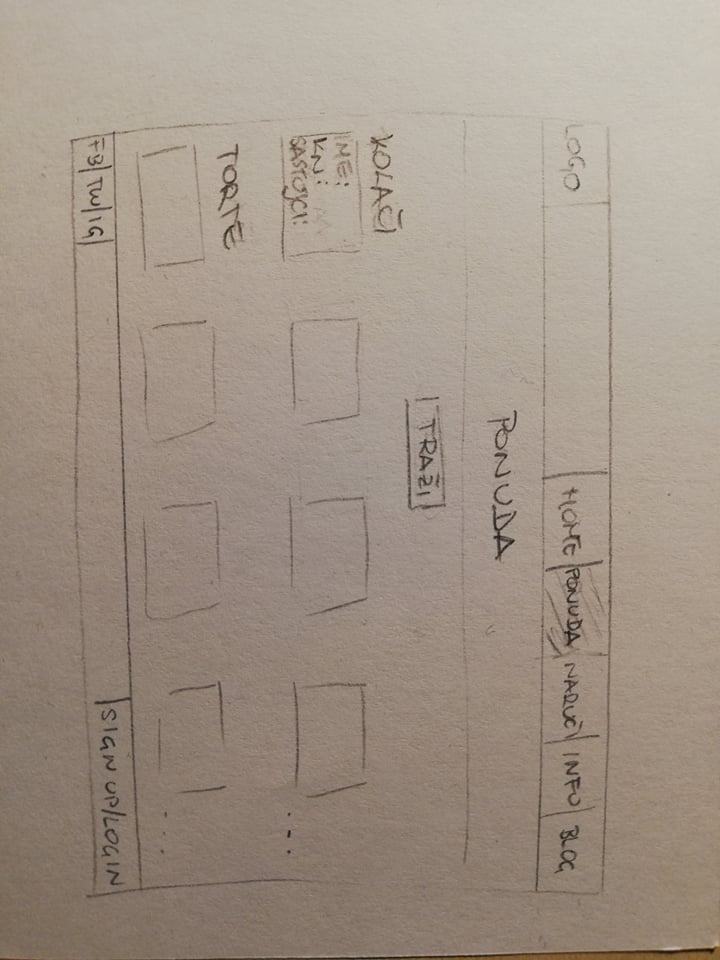 LOGO HOME PONUDA NARUČI INFO BLOG
PONUDA
TRAŽI
KOLAČI
IME:
KN:
SASTOJCI:
...
TORTE
...
FB TW IG SIGN UP/LOGIN